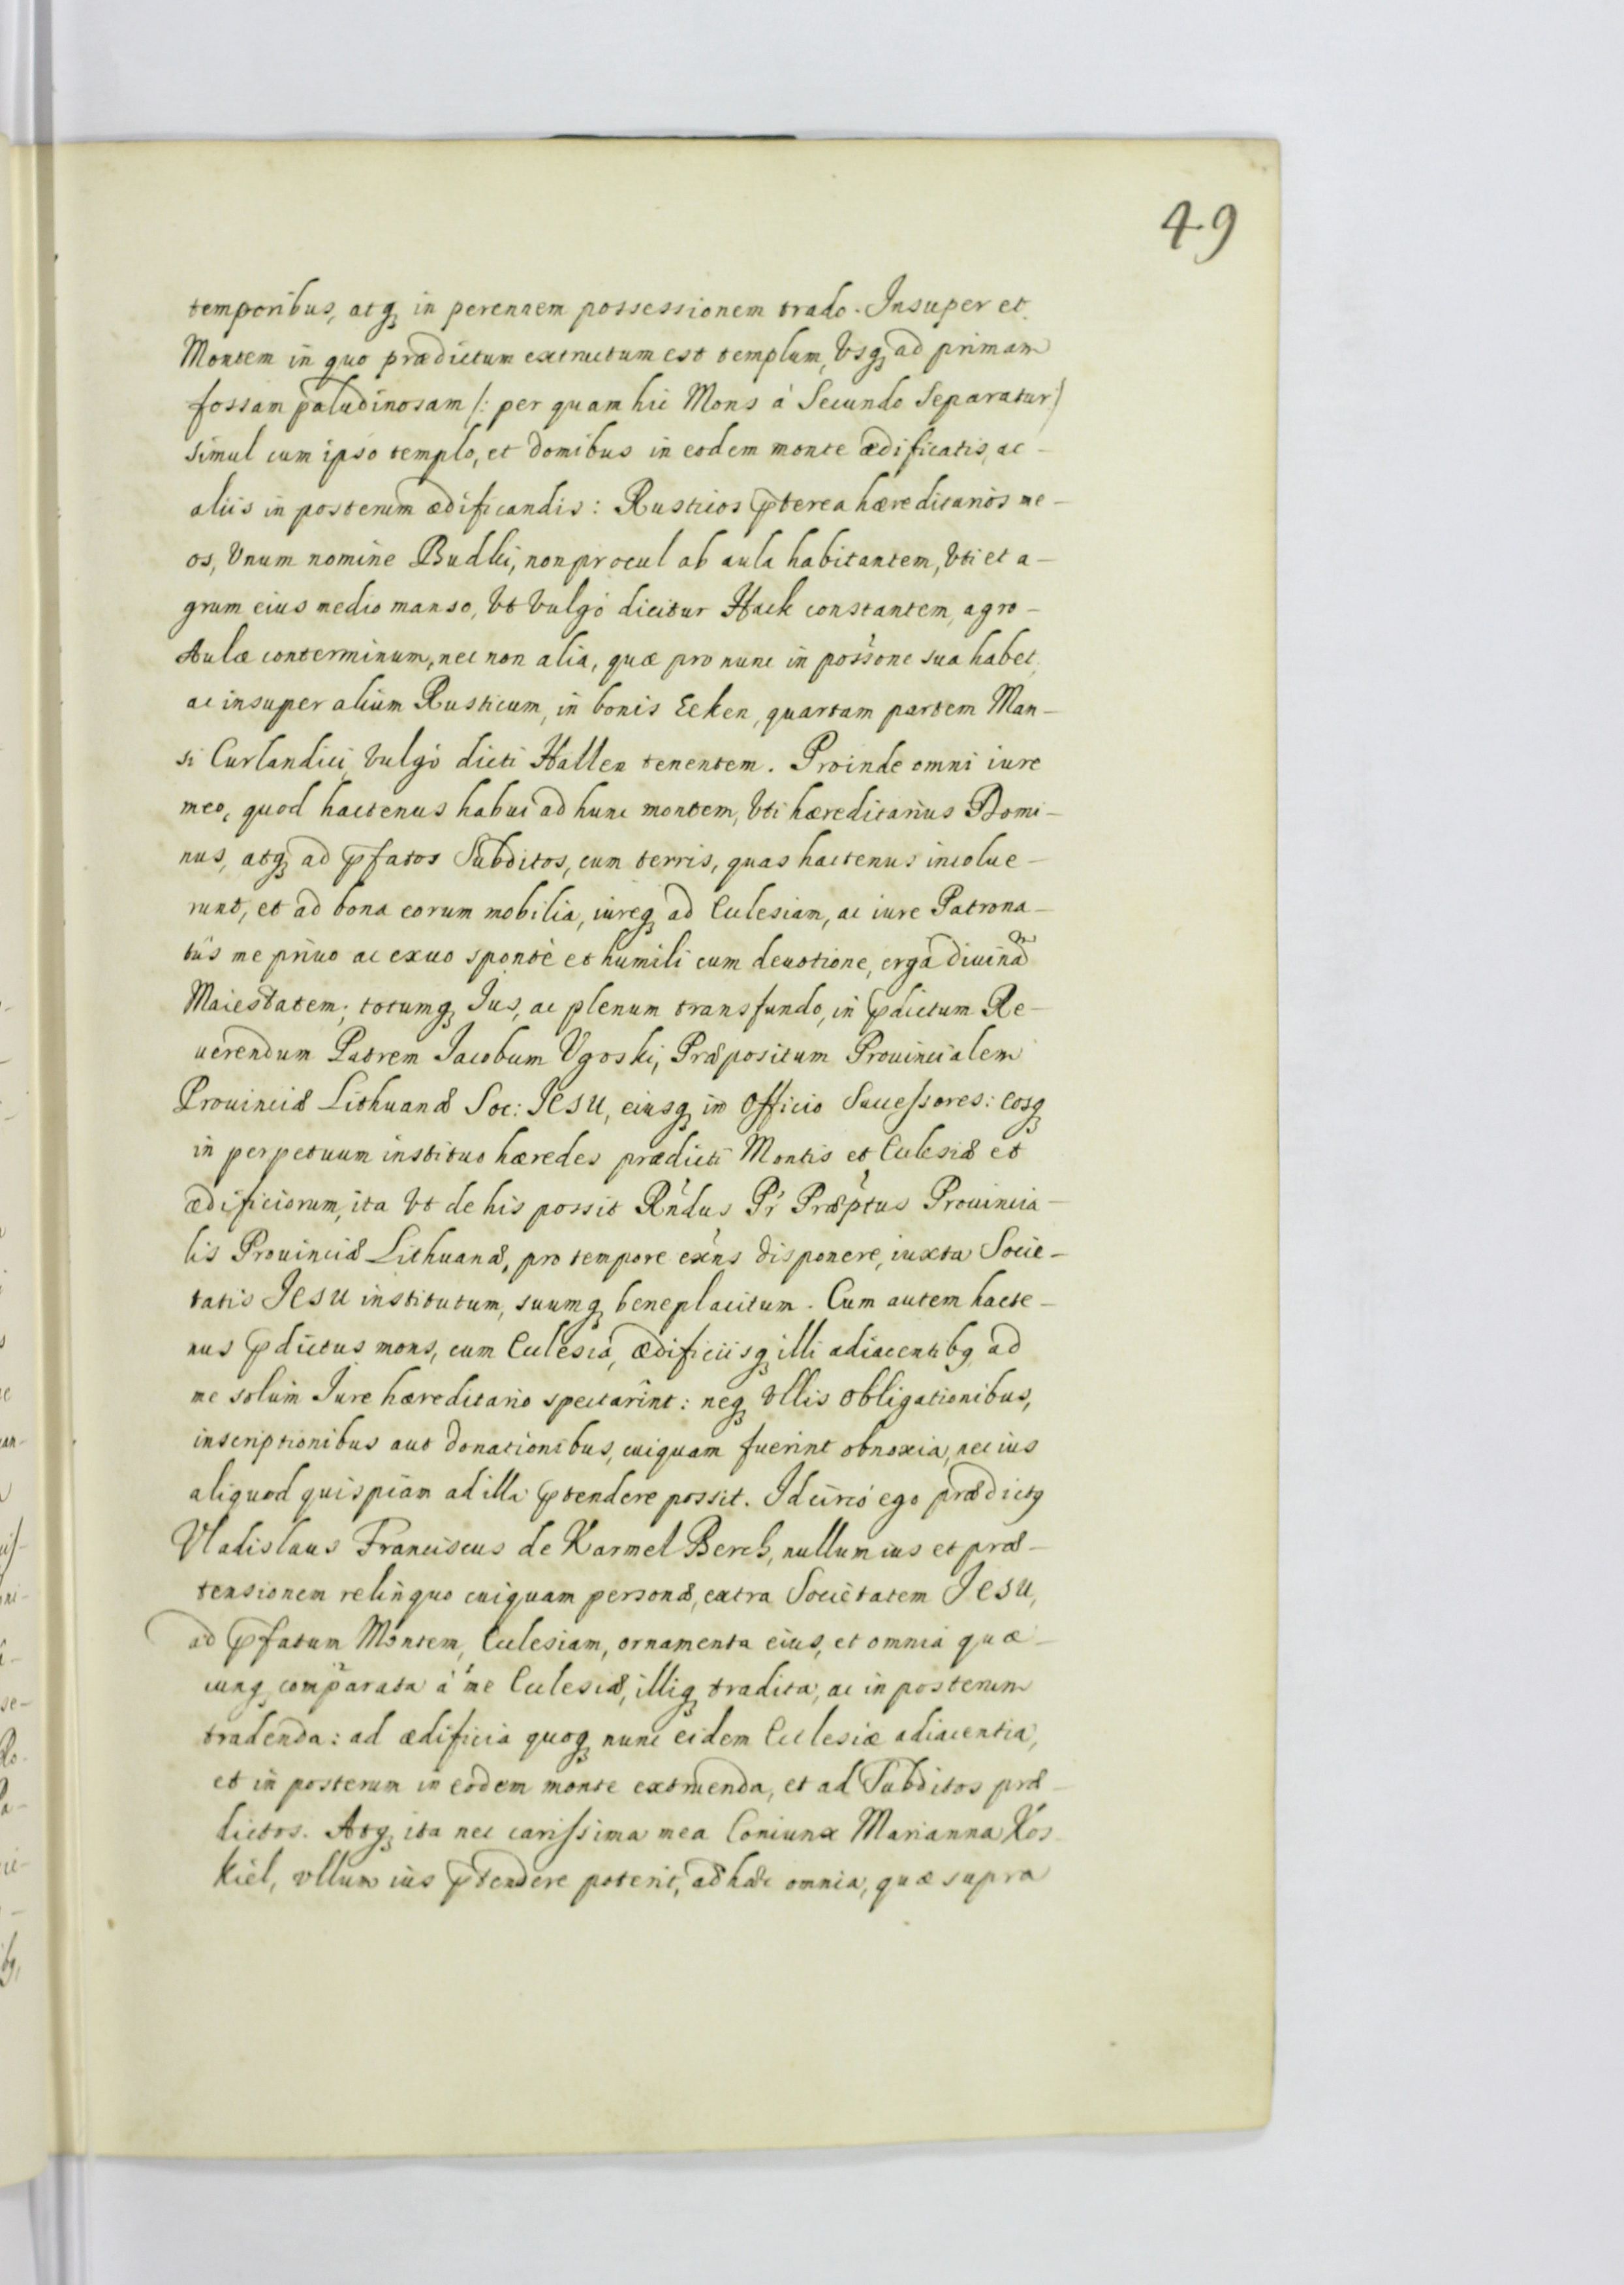 49
temporibus, atq; in perennem possessionem trado. Insuper et
Montem in quo prædictum extructum est templum, Vsq; ad primam
fossam paludinosam /: per quam hic Mons à Secundo Separatur /
simul cum ipso templo, et domibus in eodem monte ædificatis, ac -
aliis in posterum ædificandis: Rusticos p̄terea hæreditarios me -
os, Vnum nomine Budki, non procul ab aula habitantem, Vti et a -
grum eius medio manso, Vt Vulgò dicitur Hack constantem, agro -
Aulæ conterminum, nec non alia, quæ pro nunc in possone sua habet,
ac insuper alium Rusticum, in bonis Ecken, quartam partem Man -
si Curlandici Vulgò dicti Hallen tenentem. Proinde omni iure
meo, quod hactenus habui ad hunc montem, Vti hæreditarius Domi -
nus, atq; ad p̄fatos Subditos, cum terris, quas hactenus incolue -
runt, et ad bona eorum mobilia, iureq; ad Ecclesiam, ac iure Patrona -
tûs me priuo ac exuo spontè et humili cum deuotione, erga diuinã
Maiestatem; totumq; Jus, ac plenum transfundo, in p̄dictum Re -
uerendum Patrem Jacobum Vgoski, Præpositum Prouincialem
Prouinciæ Lithuanæ Soc: JESU, eiusq; in Officio Successores: eosq;
in perpetuum instituo hæredes prædicti Montis et Ecclesiæ et
ædificiorum, ita Vt de his possit Rndus Pr Præptus Prouincia -
lis Prouinciæ Lithuanæ, pro tempore exns disponere, iuxta Socie -
tatis JESU institutum, suumq; beneplacitum. Cum autem hacte -
nus p̄dictus mons, cum Ecclesiâ, ædificiisq; illi adiacentibq ad
me solùm Jure hæreditario spectarint: neq; Vllis obligationibus,
inscriptionibus aut donationibus, cuiquam fuerint obnoxia, nec ius
aliquod quispiam ad illa p̄tendere possit. Idcircò ego prædictq
Vladislaus Franciscus de Karmel Berch, nullum ius et præ -
tensionem relinquo cuiquam personæ, extra Societatem JESU,
ad p̄fatum Montem, Ecclesiam, ornamenta eius, et omnia quæ -
cunq; comparata à me Ecclesiæ, illiq; tradita, ac in posterum
tradenda: ad ædificia quoq; nunc eidem Ecclesiæ adiacentia,
et in posterum in eodem monte extruenda, et ad Subditos præ -
dictos. Atq; ita nec carissima mea Coniunx Marianna Kos -
kiel, vllum ius p̄tendere poterit, ad hæc omnia, quæ supra